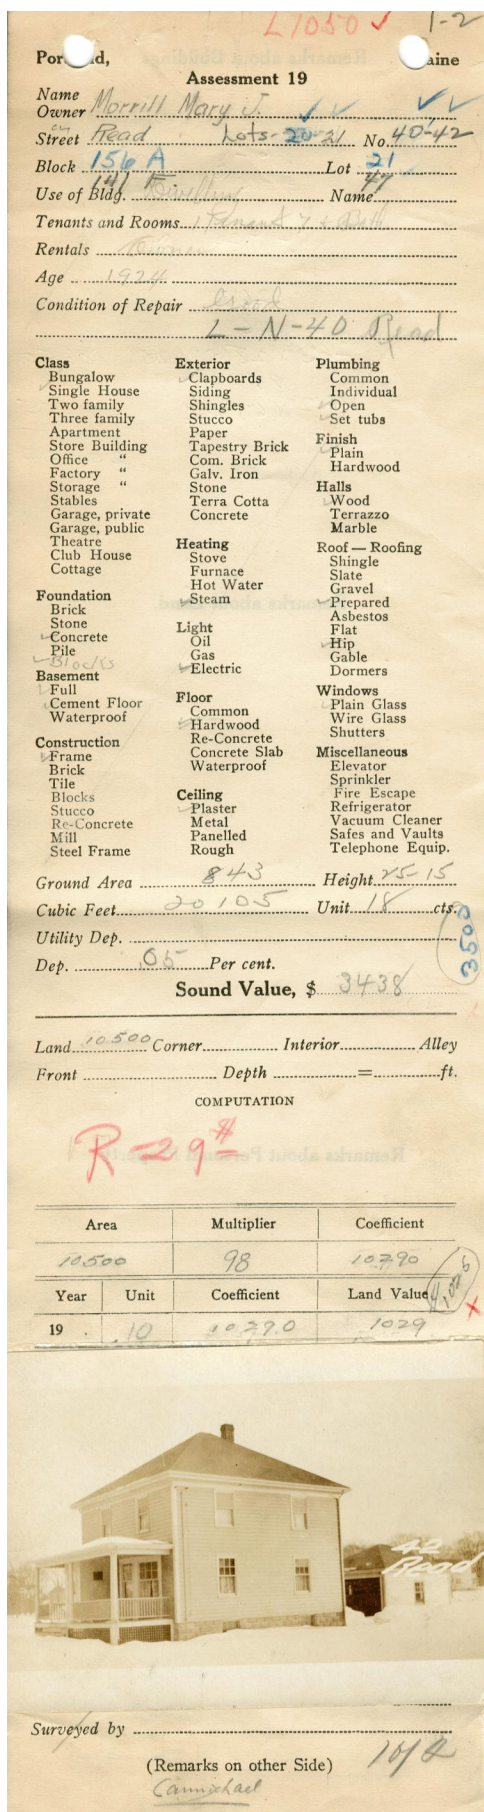 L 1050 ✓ 1-2
Portland, Maine
Assessment 19
Name
Owner Morrill Mary J.
Street on Read Lots-20-21 No. 40-42
Block 156 A Lot 21
141 F. 47
Use of Bldg. Dwelling Name
Tenants and Rooms 1 Tenant 7 + Bath
Rentals Owner
Age 1924
Condition of Repair Good
L-N-40 Read
Class
Bungalow
✓ Single House
Two family
Three family
Apartment
Store Building
Office "
Factory "
Storage "
Stables
Garage, private
Garage, public
Theatre
Club House
Cottage
Foundation
Brick
Stone
✓ Concrete
Pile
✓ Blocks
Basement
✓ Full
✓ Cement Floor
Waterproof
Construction
✓ Frame
Brick
Tile
Blocks
Stucco
Re-Concrete
Mill
Steel Frame
Exterior
✓ Clapboards
Siding
Shingles
Stucco
Paper
Tapestry Brick
Com. Brick
Galv. Iron
Stone
Terra Cotta
Concrete
Heating
Stove
Furnace
Hot Water
✓ Steam
Light
Oil
Gas
✓ Electric
Floor
Common
✓ Hardwood
Re-Concrete
Concrete Slab
Waterproof
Ceiling
✓ Plaster
Metal
Panelled
Rough
Plumbing
Common
Individual
✓ Open
✓ Set tubs
Finish
✓ Plain
Hardwood
Halls
✓ Wood
Terrazzo
Marble
Roof — Roofing
Shingle
Slate
Gravel
✓ Prepared
Asbestos
Flat
✓ Hip
Gable
Dormers
Windows
✓ Plain Glass
Wire Glass
Shutters
Miscellaneous
Elevator
Sprinkler
Fire Escape
Refrigerator
Vacuum Cleaner
Safes and Vaults
Telephone Equip.
Ground Area 843 Height 25-15
Cubic Feet 20105 Unit 18 cts.
3500
Utility Dep.
Dep. .05 Per cent.
Sound Value, $ 3438
Land 10500 Corner Interior Alley
Front Depth = ft.
COMPUTATION
R-29#
Area Multiplier Coefficient
10500 98 10290
Year Unit Coefficient Land Value
19 .10 1029.0 1029
42
Read
Surveyed by
(Remarks on other Side)
Carmichael